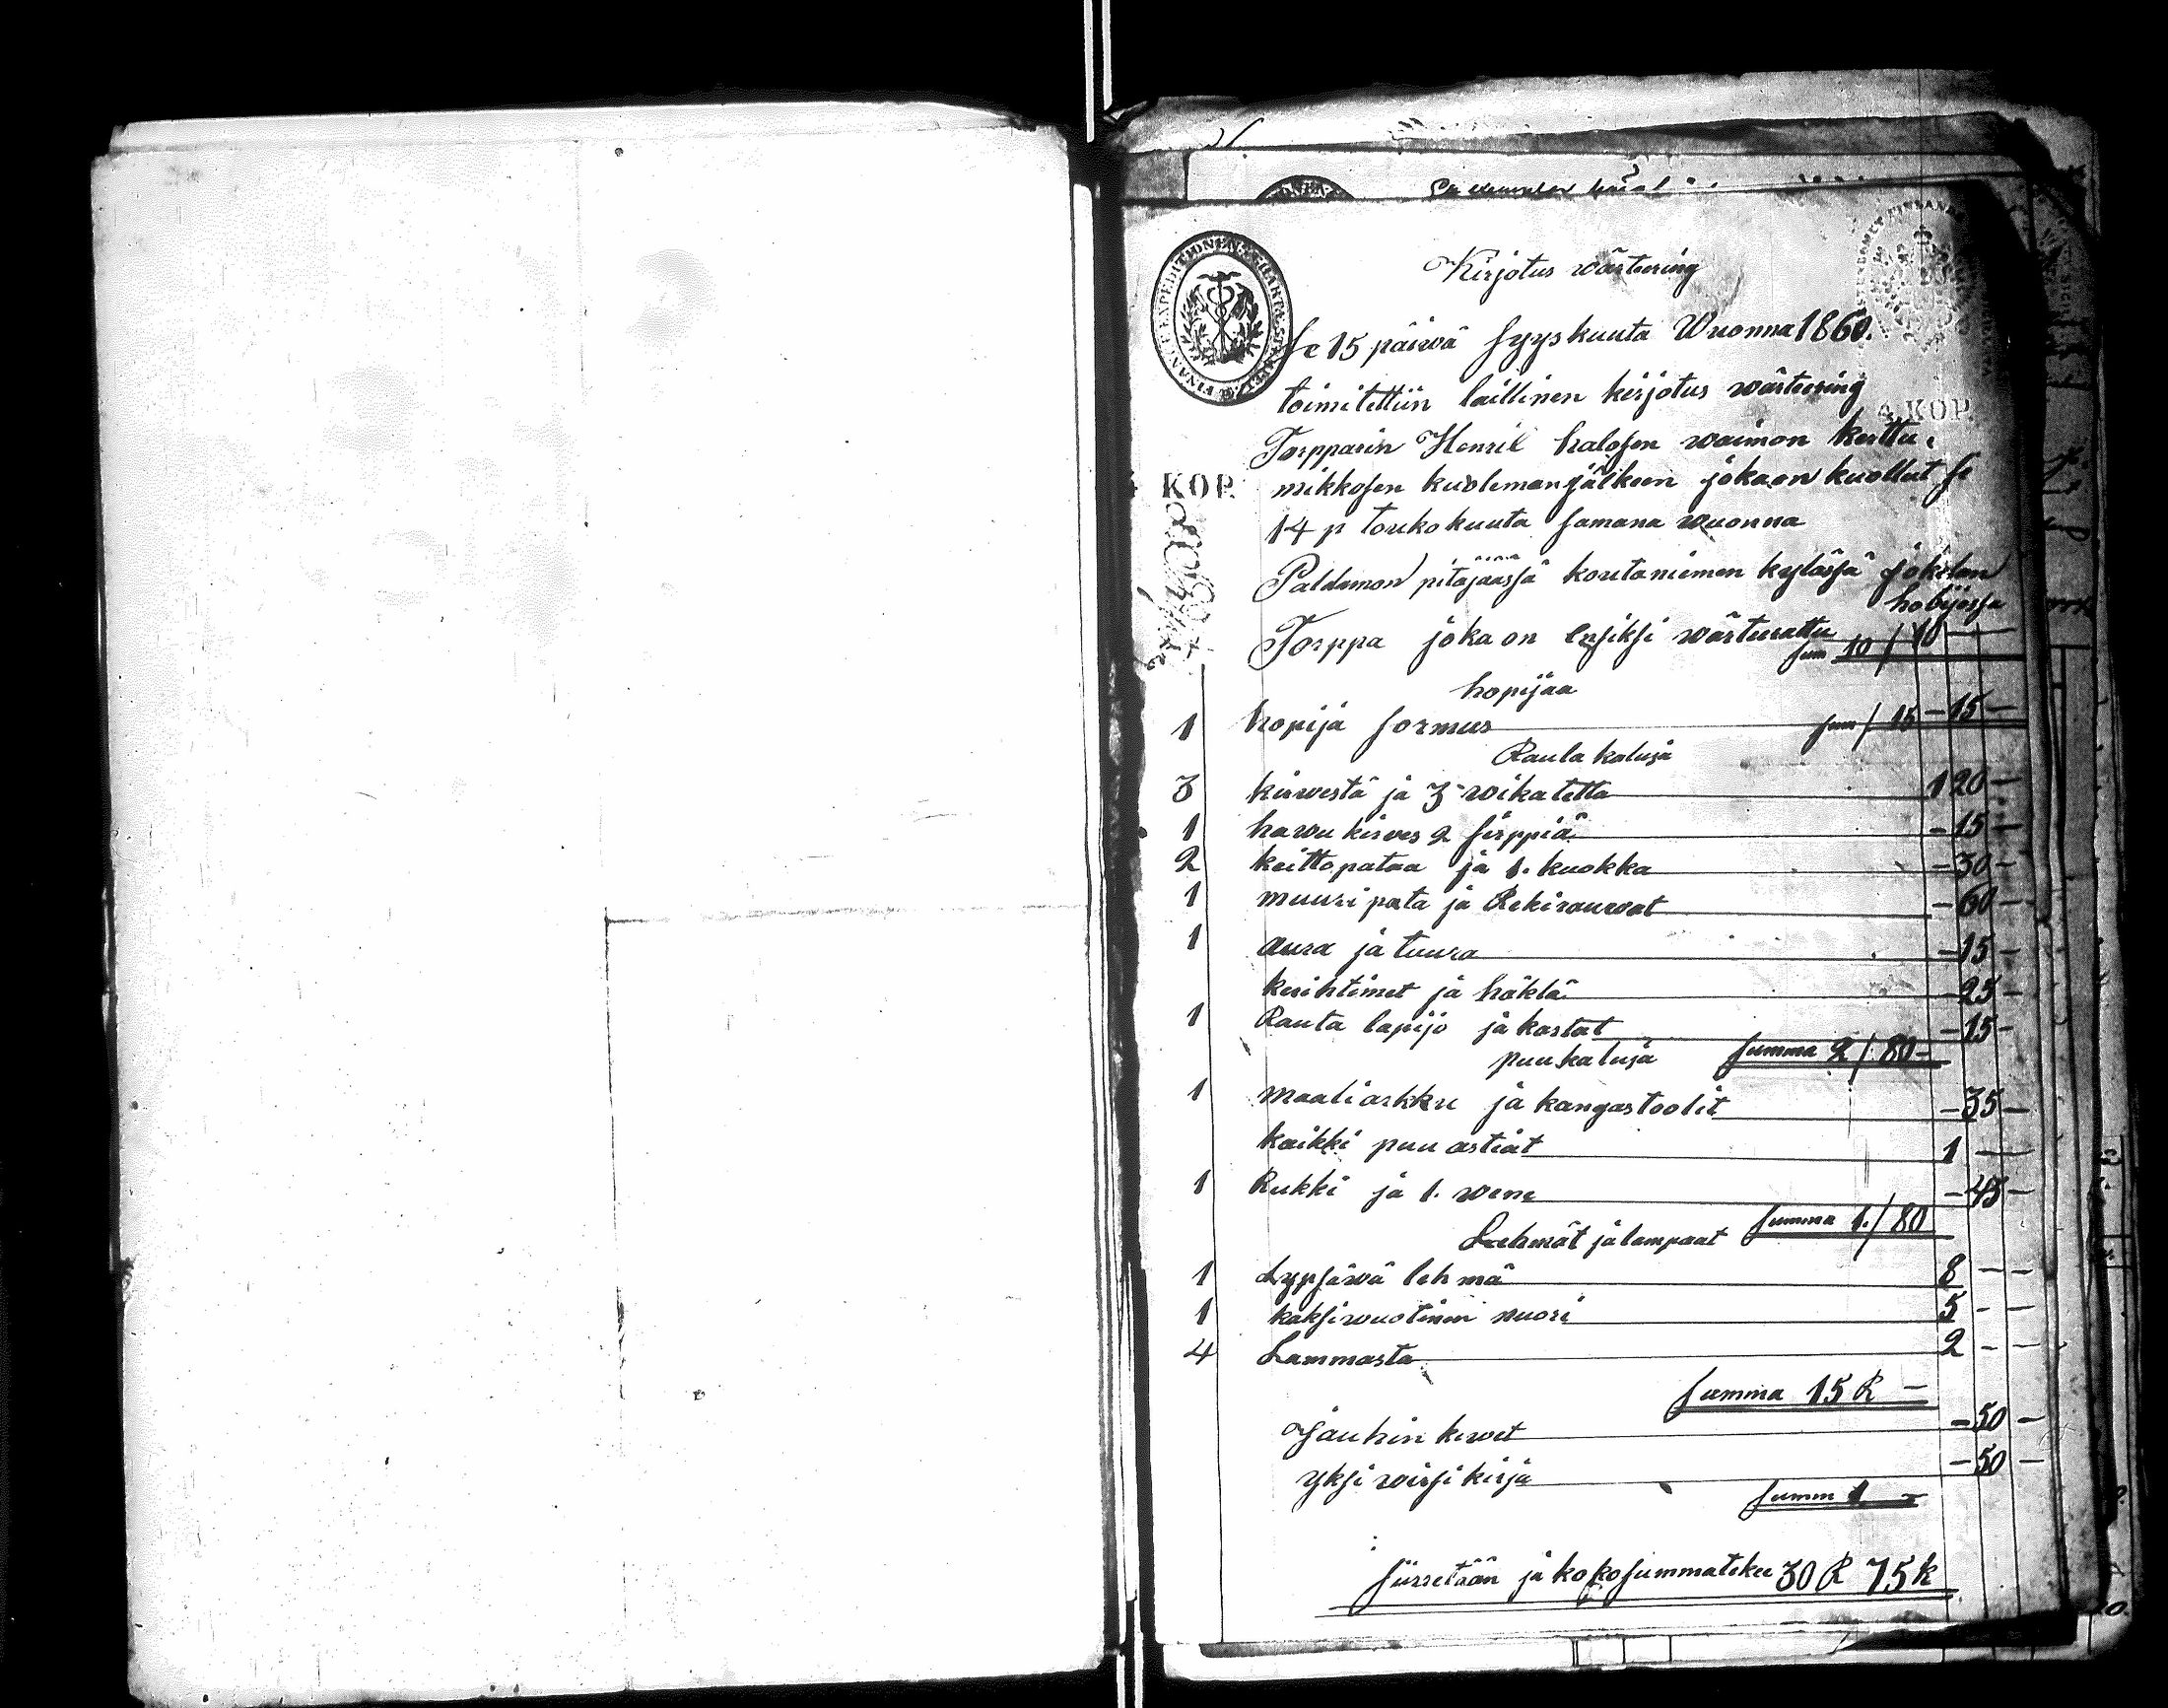 Kirjotus wärteering
se 15 päiwä syyskuuta Wuonna 1860.
toimitettiin laillinen kirjotus wärteering
4 KOP.
Torpparin Henril halosen waimon kerttu
KOP. mikkosen kuoleman jälkeen joka on kuollut se
14 p toukokuuta samana wuonna
Paldamon pitäjäässä koutaniemen kylässä jokelan
hobijossa
Torppa joka on ensiksi wärteerattu 10 —
sum 10 /
hopijaa
1 hopija sormus sum / 15 — 15 —
Rauta kaluja
3 kirwestä ja 3 wikatetta 1 20 —
1 hawu kirwes 2 sirppiä — 15 —
2 keittopataa ja 1. kuokka — 30 —
1 muuri pata ja Rekirauwat — 60 —
1 aura ja tuura — 15 —
kerihtimet ja häklä — 25 —
1 Rauta lapijo ja kastat — 15 —
puukaluja summa 2 / 80 —
1 maaliarkku ja kangastoolit — 35 —
kaikki puu astiat 1 —
1 Rukki ja 1. wene — 45 —
Lehmät ja lampaat summa 1. / 80
1 Lypsäwä lehmä 8 — —
1 kaksiwuotinen nuori 5 — —
4 Lammasta 2 — —
summa 15 R —
Jauhin kiwet — 50 —
yksi wirsi kirja — 50 —
summ 1 —
siirretään ja koko summa tekee 30 R 75 k